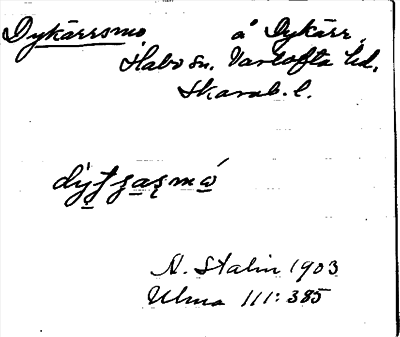 Dykärrsmo å Dykärr,
Habo sn. Vartofta hd.
Skarab. l.
A. Stalin 1903
Ulma 111:385